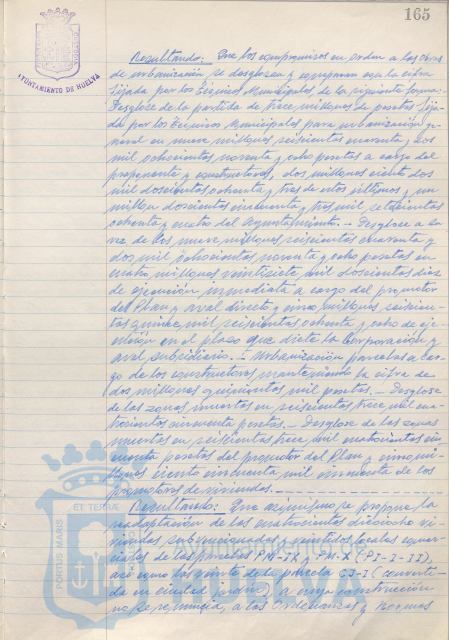 165
AYUNTAMIENTO DE HUELVA
Resultando: Que los compromisos en orden a las obras
de urbanización se desglosan y comprenden en la cifra
fijada por los Técnicos Municipales de la siguiente forma:
Desglose de la partida de trece millones de pesetas fija-
da por los Técnicos Municipales para urbanización ge-
neral en nueve millones seiscientas cuarenta y dos
mil ochocientas noventa y ocho pesetas a cargo del
proponente y constructores, dos millones ciento dos
mil doscientas ochenta y tres de estos últimos y un
millon doscientas cincuenta y tres mil setecientas
ochenta y cuatro del Ayuntamiento.- Desglose a su
vez de los nueve millones seiscientas cuarenta y
dos mil ochocientas noventa y ocho pesetas en
cuatro millones veintisiete mil doscientas diez
de ejecución inmediata a cargo del promotor
del Plan y aval directo y cinco millones seiscien-
tas quince mil seiscientas ochenta y ocho de eje-
cución en el plazo que dicte la Corporación y
aval subsidiario.- Urbanización parcelas a car-
go de los constructores manteniendo la cifra de
dos millones quinientas mil pesetas.- Desglose
de las zonas muertas en seiscientas trece mil cua-
trocientas cincuenta pesetas.- Desglose de las zonas
muertas en seiscientas trece mil cuatrocientas cin-
cuenta pesetas del promotor del Plan y cinco mi-
llones ciento cincuenta mil cincuenta de los
promotores de viviendas.
Resultando: Que asimismo se propone la
readaptación de las cuatrocientas dieciocho vi-
viendas subvencionadas y veintidos locales comer-
ciales de las parcelas PN-IX y PN-X (PI-I-II),
así como las veinte de la parcela CJ-I (converti-
da en ciudad jardín) a cuya construcción
no se renuncia, a las Ordenanzas y normas
ET TERRAE
PORTUS MARIS